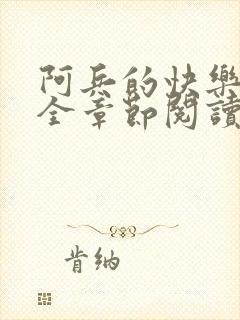 阿兵的快樂
全章節閱讀
肯納